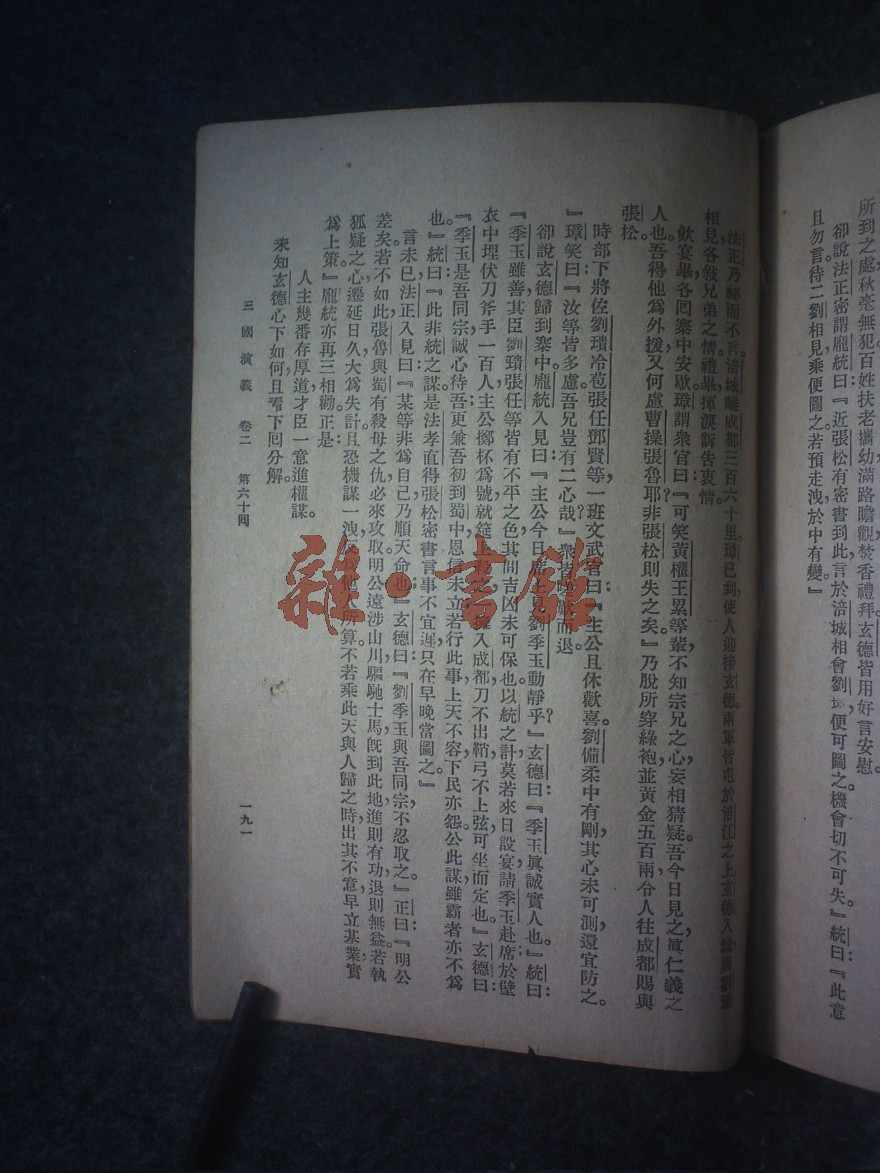 所到之處秋毫無犯百姓扶老攜幼滿路瞻觀焚香禮拜玄德皆用好言安慰
卻說法正密謂龐統曰『近張松有密書到此言於涪城相會劉 便可圖之機會切不可失。』統曰『此意
且勿言待二劉相見乘便圖之若預走洩於中有變』
法正乃祕而不言。涪城離成都三百六十里。璋已到使人迎接玄德。兩軍皆屯於涪江之上玄德入城與劉璋
相見各敍兄弟之情。禮畢揮淚訴告衷情。
飲宴畢各回寨中安歇璋謂衆官曰『可笑黃權王累等輩不知宗兄之心妄相猜疑。吾今日見之眞仁義之
人也。吾得他爲外援又何慮曹操張魯耶？非張松則失之矣』乃脫所穿綠袍並黃金五百兩令人往成都賜與
張松。
時部下將佐劉璝冷苞張任鄧賢等一班文武官曰『主公且休歡喜。劉備柔中有剛其心未可測還宜防之。
』璋笑曰『汝等皆多慮。吾兄豈有二心哉？』衆皆 而退。
卻說玄德歸到寨中龐統入見曰『主公今日席上見劉季玉動靜乎？』玄德曰『季玉眞誠實人也。』統曰
『季玉雖善其臣劉璝張任等皆有不平之色其間吉凶未可保也。以統之計莫若來日設宴請季玉赴席於壁
衣中埋伏刀斧手一百人主公擲杯爲號就筵上殺之 入成都刀不出鞘弓不上弦可坐而定也。』玄德曰
『季玉是吾同宗誠心待吾更兼吾初到蜀中恩信未立若行此事上天不容下民亦怨。公此謀雖霸者亦不爲
也。』統曰『此非統之謀。是法孝直得張松密書言事不宜遲只在早晚當圖之』
言未已法正入見曰『某等非爲自己乃順天命也』玄德曰『劉季玉與吾同宗不忍取之。』正曰『明公
差矣若不如此張魯與蜀有殺母之仇必來攻取明公遠涉山川驅馳士馬旣到此地進則有功退則無益若執
狐疑之心遷延日久大爲失計且恐機謀一洩反 他人所算不若乘此天與人歸之時出其不意早立基業實
爲上策』龐統亦再三相勸。正是
人主幾番存厚道才臣一意進權謀。
未知玄德心下如何且看下回分解。
三國演義 卷二 第六十回 一九一
雜·書館